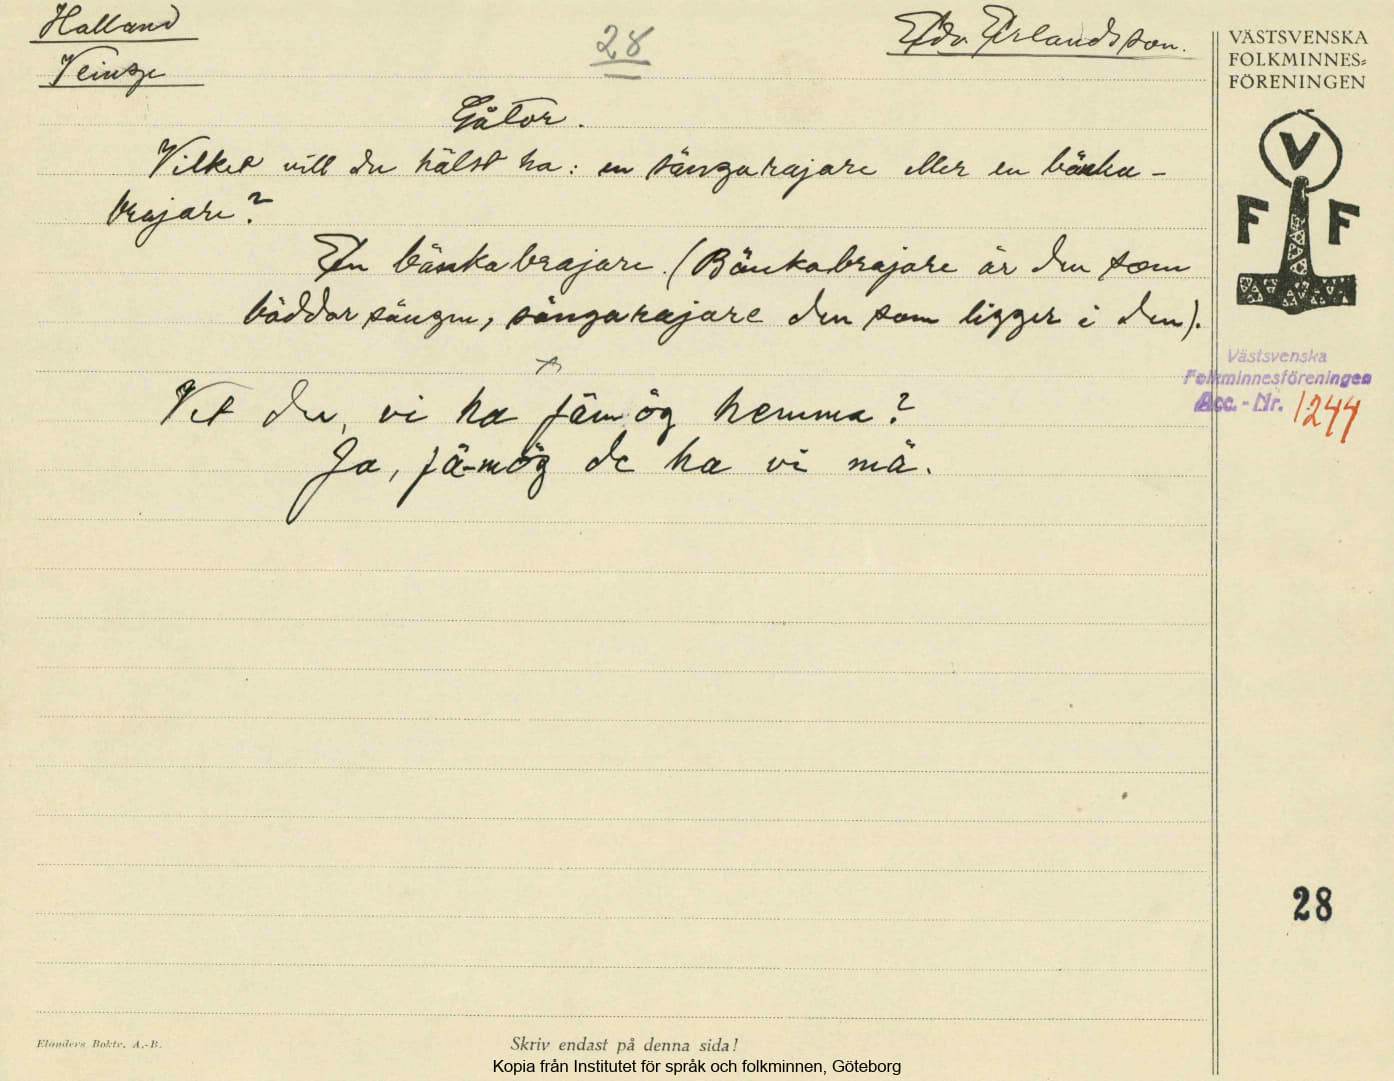 Halland
Veinge
28
Edv. Erlandsson.
VÄSTSVENSKA
FOLKMINNES=
FÖRENINGEN
V
F F
Gåtor.
Vilket vill du hälst ha: en sängarajare eller en bänka-
brajare?
En bänkabrajare. (Bänkabrajare är den som
bäddar sängen, sängarajare den som ligger i den).
Vet du, vi ha jäm ög hemma?
Ja, jä-mög de ha vi mä.
Västsvenska
Folkminnesföreningen
Acc. - Nr. 1244
28
Elanders Boktr. A.-B.
Skriv endast på denna sida!
Kopia från Institutet för språk och folkminnen, Göteborg